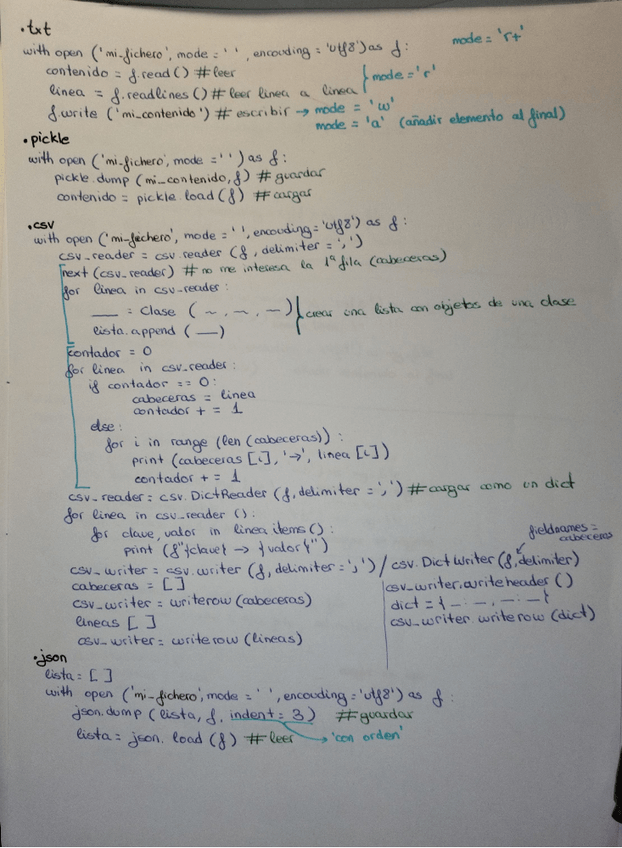 •txt
with open ('mi-fichero', mode = ' ', encoding = 'utf8') as f: mode = 'r+'
contenido = f.read () # leer
linea = f.readlines () # leer linea a linea } mode = 'r'
f.write ('mi_contenido') # escribir → mode = 'w'
mode = 'a' (añadir elemento al final)
•pickle
with open ('mi-fichero', mode = ' ') as f:
pickle.dump (mi_contenido, f) # guardar
contenido = pickle.load (f) # cargar
•csv
with open ('mi-fichero', mode = ' ', encouding = 'utf8') as f:
csv_reader = csv.reader (f, delimiter = ',')
next (csv_reader) # no me interesa la 1ª fila (cabeceras)
for linea in csv-reader:
___ = Clase (~, ~, ~)
lista.append (__) } crear una lista con objetos de una clase
contador = 0
for linea in csv_reader:
if contador == 0:
cabeceras = linea
contador += 1
else:
for i in range (len (cabeceras)):
print (cabeceras [i], '→', linea [i])
contador += 1
csv_reader = csv.DictReader (f, delimiter = ',') # cargar como un dict
for linea in csv_reader ():
for clave, valor in linea.items ():
print (f"{clave} → {valor}")
csv_writer = csv.writer (f, delimiter = ',') / csv.DictWriter (f, delimiter) fieldnames = cabeceras
cabeceras = [ ]
csv_writer = writerow (cabeceras)
lineas [ ]
csv_writer = writerow (lineas)
csv_writer.writeheader ()
dict = {_:_, _:_}
csv_writer.writerow (dict)
•json
lista = [ ]
with open ('mi_fichero', mode = ' ', encouding = 'utf8') as f:
json.dump (lista, f, indent = 3) # guardar
lista = json.load (f) # leer → 'con orden'